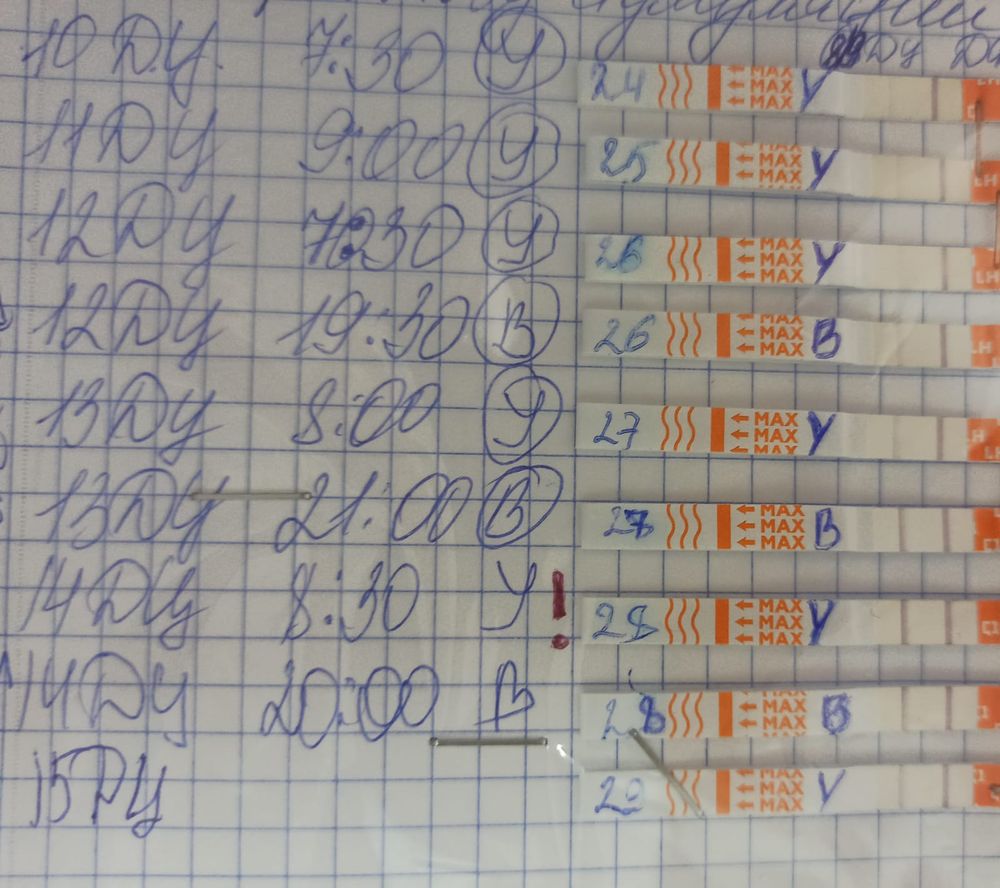 10 ДЦ. 7:30 У 24 MAX MAX MAX У ДЦ
11 ДЦ 9:00 У 25 MAX MAX MAX У LH
12 ДЦ 7:30 У 26 MAX MAX MAX У LH
12 ДЦ 19:30 В 26 MAX MAX MAX В LH
13 ДЦ 8:00 У 27 MAX MAX MAX У LH
13 ДЦ 21:00 В 27 MAX MAX MAX В
14 ДЦ 8:30 У! 28 MAX MAX MAX У
14 ДЦ 20:00 В 28 MAX MAX MAX В
15 ДЦ 29 MAX MAX MAX У